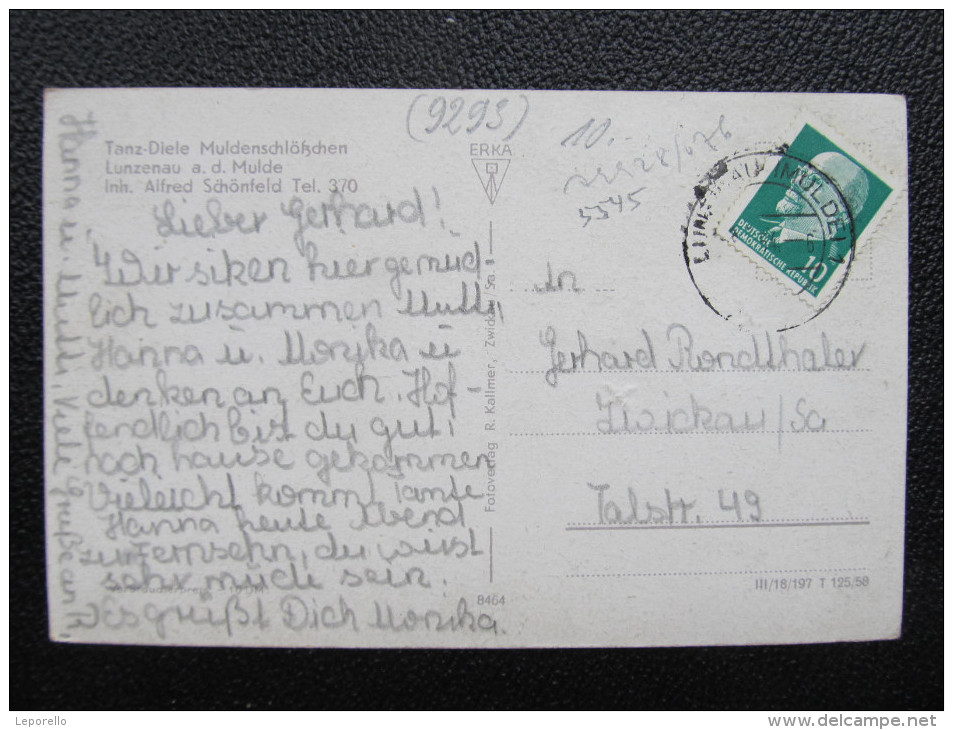 (9293)
10.-
5545
Tanz-Diele Muldenschlößchen
Lunzenau a. d. Mulde
Inh. Alfred Schönfeld Tel. 370
ERKA
Lieber Gerhard!
Wir siken hier gemüd-
lich zusammen Mutti,
Hanna u. Monika u
denken an Euch. Hof-
fendlich bist du gut
nach hause gekommen
Vieleicht kommt Tante
Hanna heute Abend
zur Fernsehn, du wirst
sehr müde sein.
Es grüßt Dich Monika.
Hanna u. Mutti, Viele Grüße an
Fotoverlag R. Kallmer, Zwickau Sa.
8464
An
Gerhard Rondthaler
Zwickau/Sa
Talstr. 49
III/18/197 T 125/58
(MULDE)
DEUTSCHE
DEMOKRATISCHE REPUBLIK
10
Leporello
www.delcampe.net